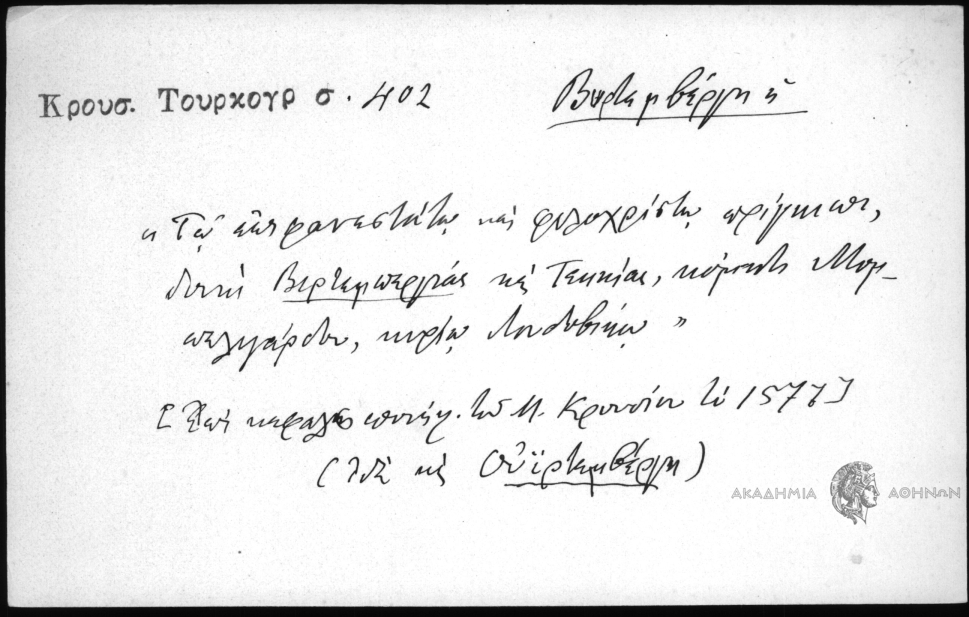 Κρουσ. Τουρκογρ σ. 402
Βυρτεμβέργη ἡ
« Τῷ ἐπιφανεστάτῳ καὶ φιλοχρίστῳ πρίγκιπι,
δουκὶ Βιρτεμπεργίας καὶ Τεκκίας, κόμητι Μομ-
πελιγάρδου, κυρίῳ Λουδοβίκῳ »
[Ἐπὶ κεφαλῆς τοῦ Μ. Κρουσίου τῷ 1577]
(Ἰδὲ καὶ Οὐϊρτεμβέργη)
ΑΚΑΔΗΜΙΑ ΑΘΗΝΩΝ